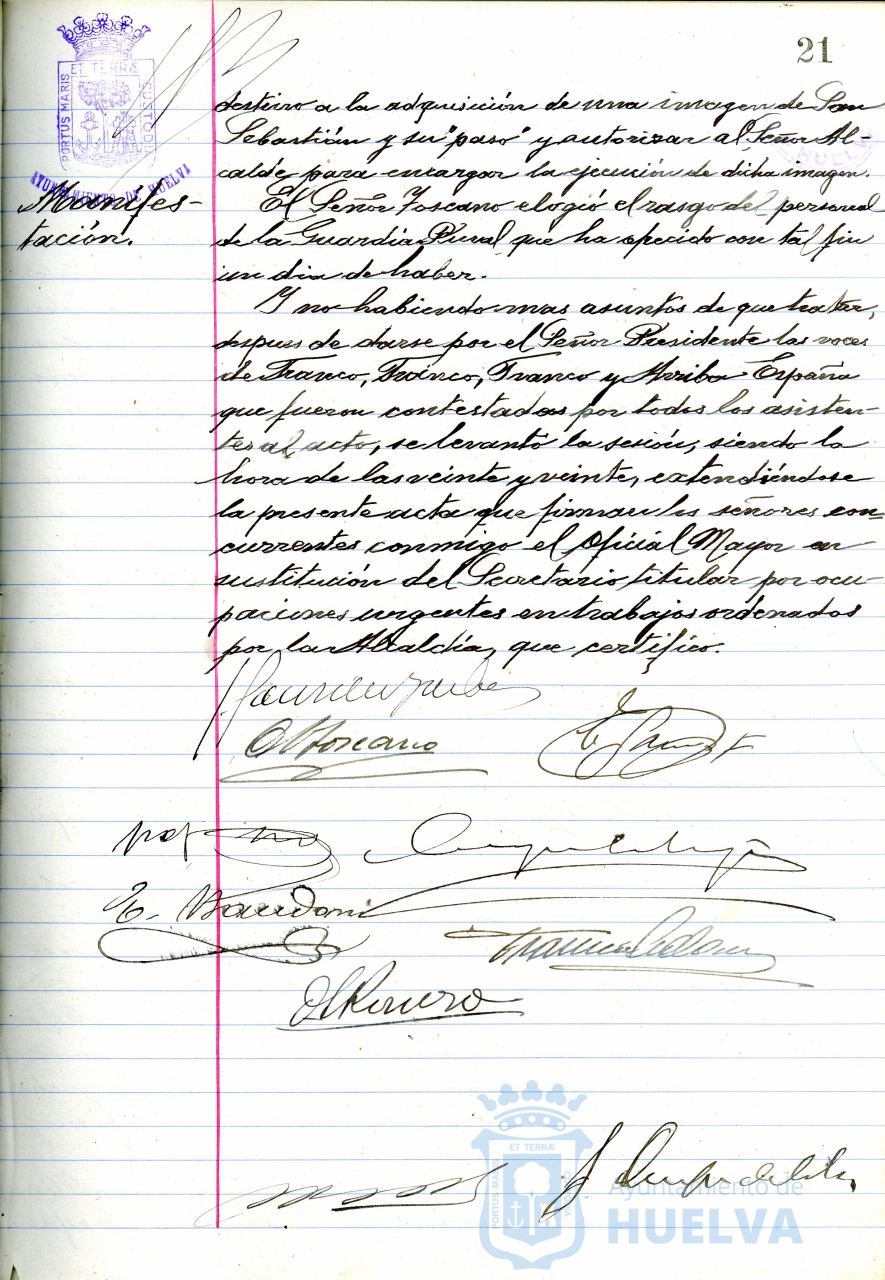 21
ET TERRÆ
PORTUS MARIS
CUSTODIA
AYUNTAMIENTO DE HUELVA
HUELVA
Manifes-
tación.
destino a la adquisición de una imagen de San
Sebastián y su "paso" y autorizar al Señor Al-
calde para encargar la ejecución de dicha imagen.
El Señor Toscano elogió el rasgo del personal
de la Guardia Rural que ha ofrecido con tal fin
un dia de haber.
Y no habiendo mas asuntos de que tratar,
despues de darse por el Señor Presidente las voces
de Franco, Franco, Franco y Arriba España
que fueron contestadas por todos los asisten-
tes al acto, se levantó la sesión, siendo la
hora de las veinte y veinte, extendiéndose
la presente acta que firman los señores con-
currentes conmigo el Oficial Mayor en
sustitución del Secretario titular por ocu-
paciones urgentes en trabajos ordenados
por la Alcaldía, que certifico.
Toscano
E.
ET TERRÆ
PORTUS MARIS
CUSTODIA
Ayuntamiento de
HUELVA